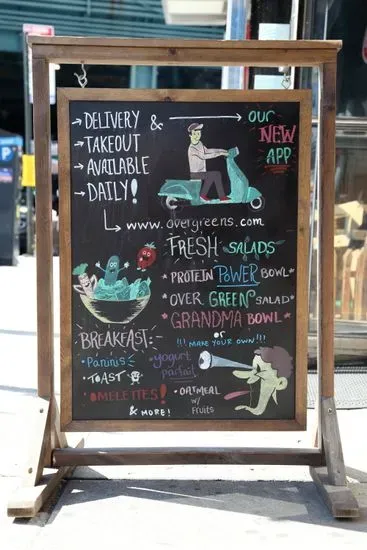 →DELIVERY & → OUR
→TAKEOUT NEW
→AVAILABLE APP
→DAILY!
→ www.overgreens.com
FRESH SALADS
*PROTEIN POWER BOWL*
*OVER GREEN SALAD*
*GRANDMA BOWL*
or
!!! MAKE YOUR OWN!!!
BREAKFAST:
•Paninis •yogurt parfait
•TOAST
•OMELETTES! •OATMEAL w/ Fruits
& MORE!